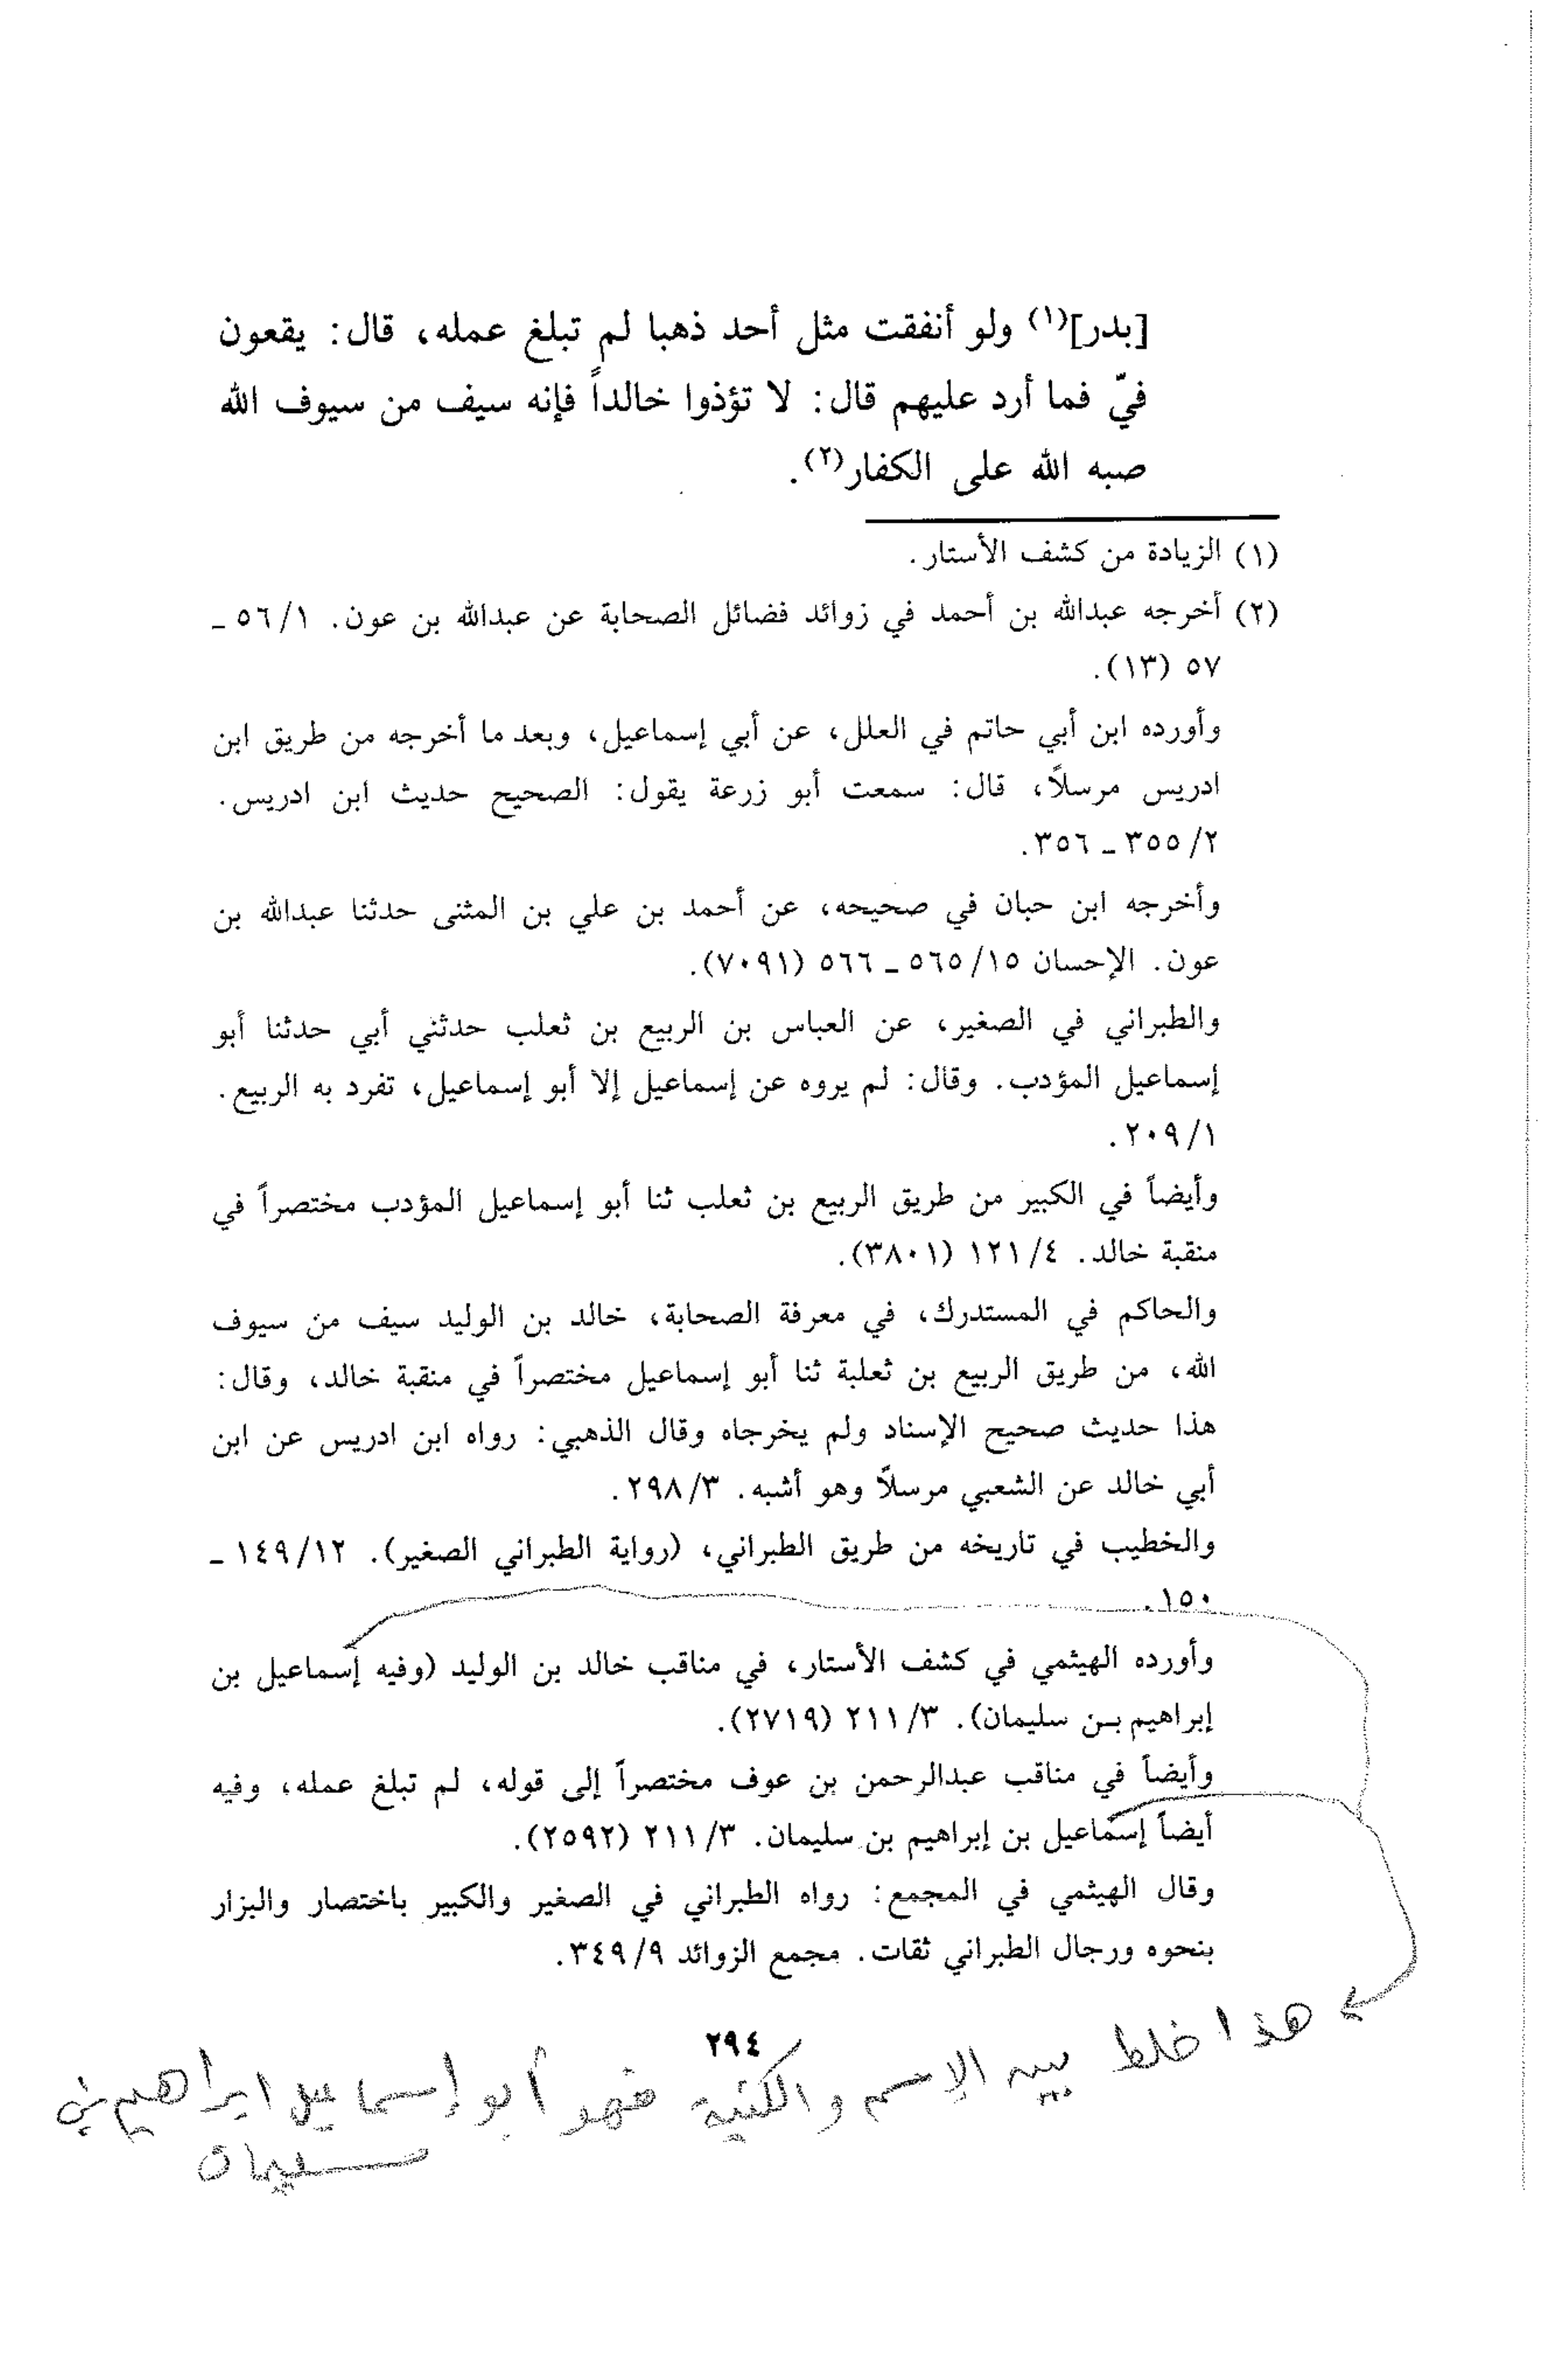 [بدر](١) ولو أنفقت مثل أحد ذهبا لم تبلغ عمله، قال: يقعون
فيّ فما أرد عليهم قال: لا تؤذوا خالداً فإنه سيف من سيوف الله
صبه الله على الكفار(٢).
(١) الزيادة من كشف الأستار.
(٢) أخرجه عبدالله بن أحمد في زوائد فضائل الصحابة عن عبدالله بن عون. ١/ ٥٦ ـ
٥٧ (١٣).
وأورده ابن أبي حاتم في العلل، عن أبي إسماعيل، وبعد ما أخرجه من طريق ابن
ادريس مرسلاً، قال: سمعت أبو زرعة يقول: الصحيح حديث ابن ادريس.
٢/ ٣٥٥ ـ ٣٥٦.
وأخرجه ابن حبان في صحيحه، عن أحمد بن علي بن المثنى حدثنا عبدالله بن
عون. الإحسان ١٥/ ٥٦٥ ـ ٥٦٦ (٧٠٩١).
والطبراني في الصغير، عن العباس بن الربيع بن ثعلب حدثني أبي حدثنا أبو
إسماعيل المؤدب. وقال: لم يروه عن إسماعيل إلا أبو إسماعيل، تفرد به الربيع.
١/ ٢٠٩.
وأيضاً في الكبير من طريق الربيع بن ثعلب ثنا أبو إسماعيل المؤدب مختصراً في
منقبة خالد. ٤/ ١٢١ (٣٨٠١).
والحاكم في المستدرك، في معرفة الصحابة، خالد بن الوليد سيف من سيوف
الله، من طريق الربيع بن ثعلبة ثنا أبو إسماعيل مختصراً في منقبة خالد، وقال:
هذا حديث صحيح الإسناد ولم يخرجاه وقال الذهبي: رواه ابن ادريس عن ابن
أبي خالد عن الشعبي مرسلاً وهو أشبه. ٣/ ٢٩٨.
والخطيب في تاريخه من طريق الطبراني، (رواية الطبراني الصغير). ١٢/ ١٤٩ ـ
١٥٠.
وأورده الهيثمي في كشف الأستار، في مناقب خالد بن الوليد (وفيه إسماعيل بن
إبراهيم بـن سليمان). ٣/ ٢١١ (٢٧١٩).
وأيضاً في مناقب عبدالرحمن بن عوف مختصراً إلى قوله، لم تبلغ عمله، وفيه
أيضاً إسماعيل بن إبراهيم بن سليمان. ٣/ ٢١١ (٢٥٩٢).
وقال الهيثمي في المجمع: رواه الطبراني في الصغير والكبير باختصار والبزار
بنحوه ورجال الطبراني ثقات. مجمع الزوائد ٩/ ٣٤٩.
٢٩٤
هذا خلط بين الإسم والكنية فهو أبو إسماعيل ابراهيم بن
سليمان